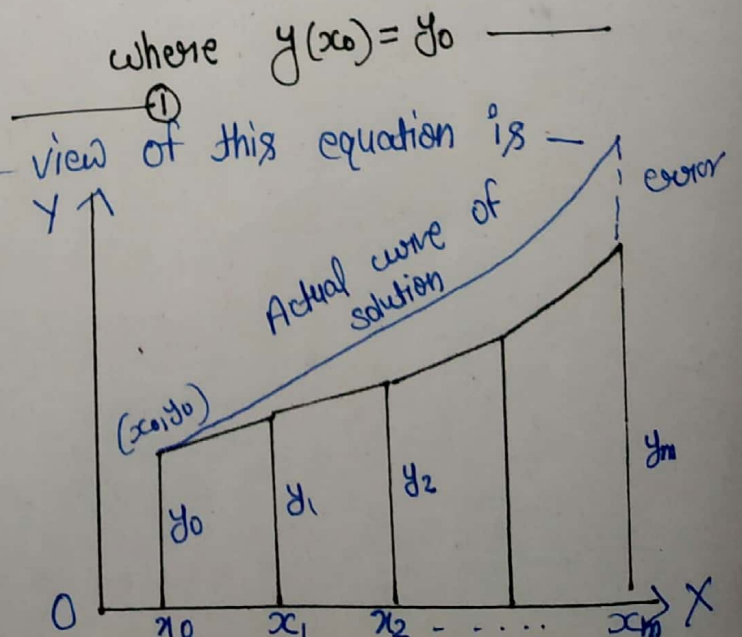 where y(x0) = y0 ———
——— ①
view of this equation is —
Y
error
Actual curve of
solution
(x0, y0)
y0 y1 y2 ym
O x0 x1 x2 - ..... xm X